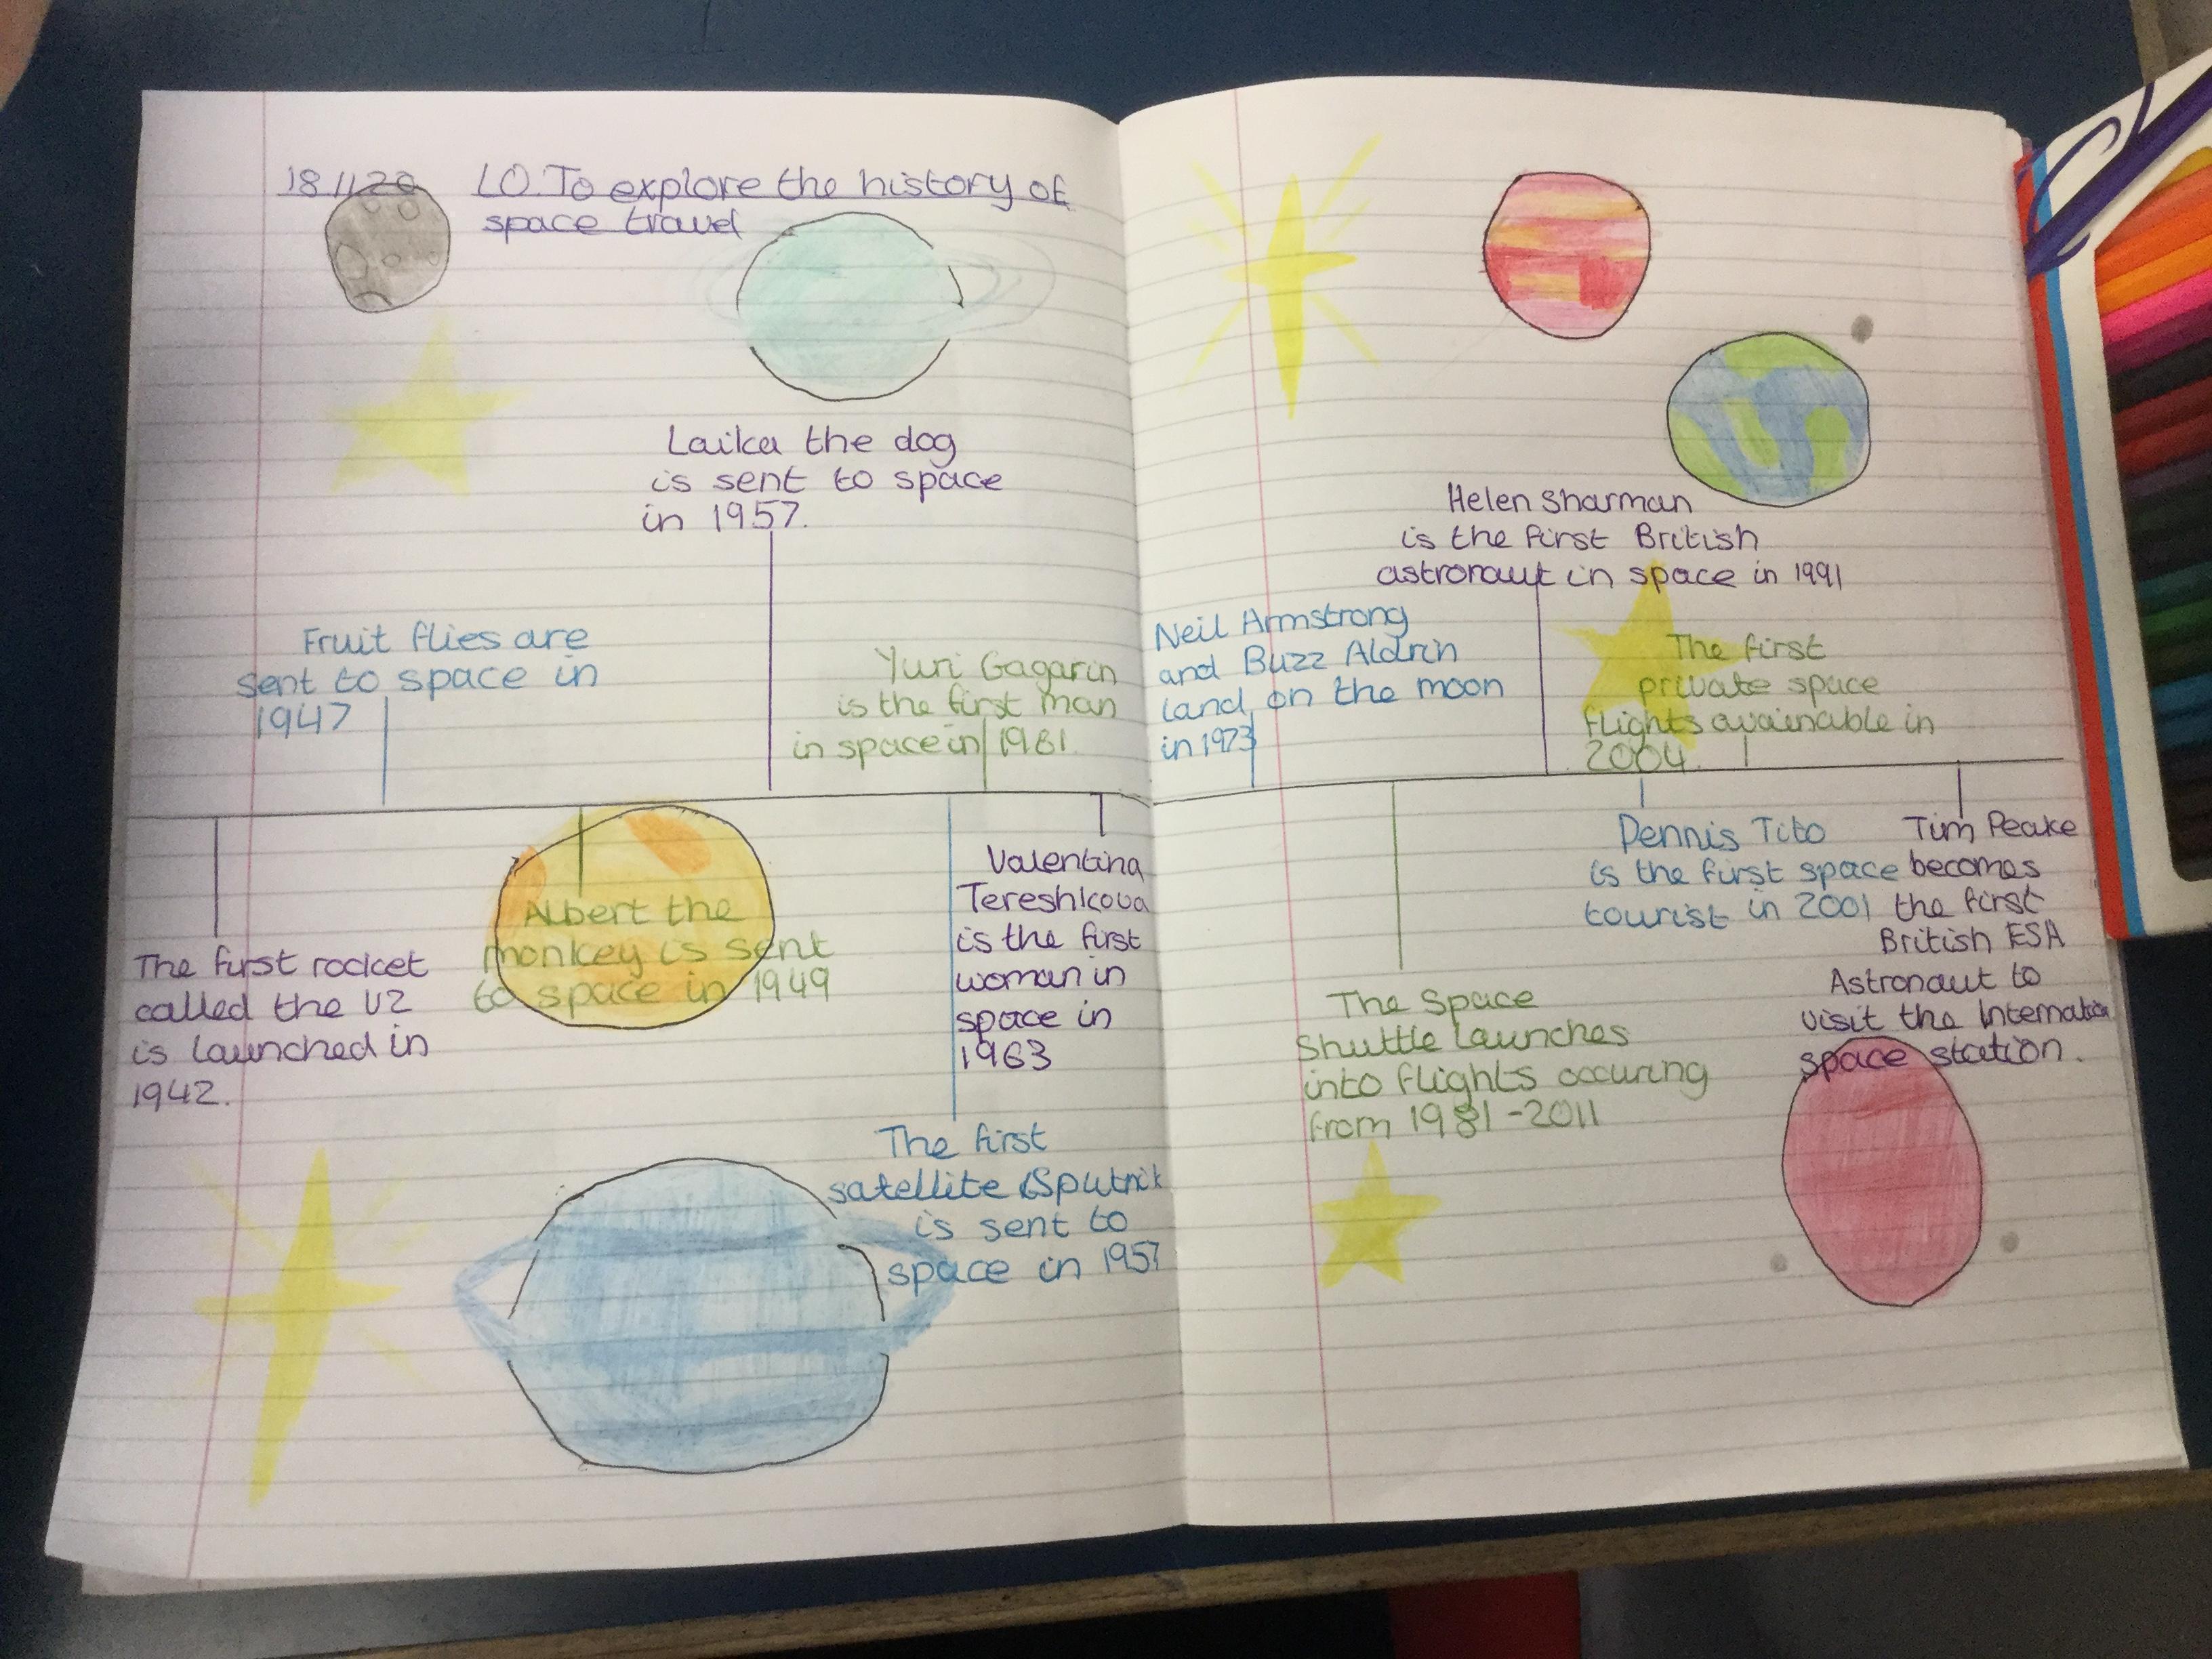 18.11.20 LO. To explore the history of
space travel
Laika the dog
is sent to space
in 1957.
Fruit flies are
sent to space in
1947
Yuri Gagarin
is the first man
in space in 1961.
The first rocket
called the V2
is launched in
1942.
Albert the
monkey is sent
to space in 1949
Valentina
Tereshkova
is the first
woman in
space in
1963
The first
satellite Sputnik
is sent to
space in 1957
Helen Sharman
is the first British
astronaut in space in 1991
Neil Armstrong
and Buzz Aldrin
land on the moon
in 1973
The first
private space
flights avainable in
2004.
The Space
Shuttle launches
into flights occuring
from 1981-2011
Dennis Tito
is the first space
tourist in 2001
Tim Peake
becomes
the first
British ESA
Astronaut to
visit the Internation
space station.